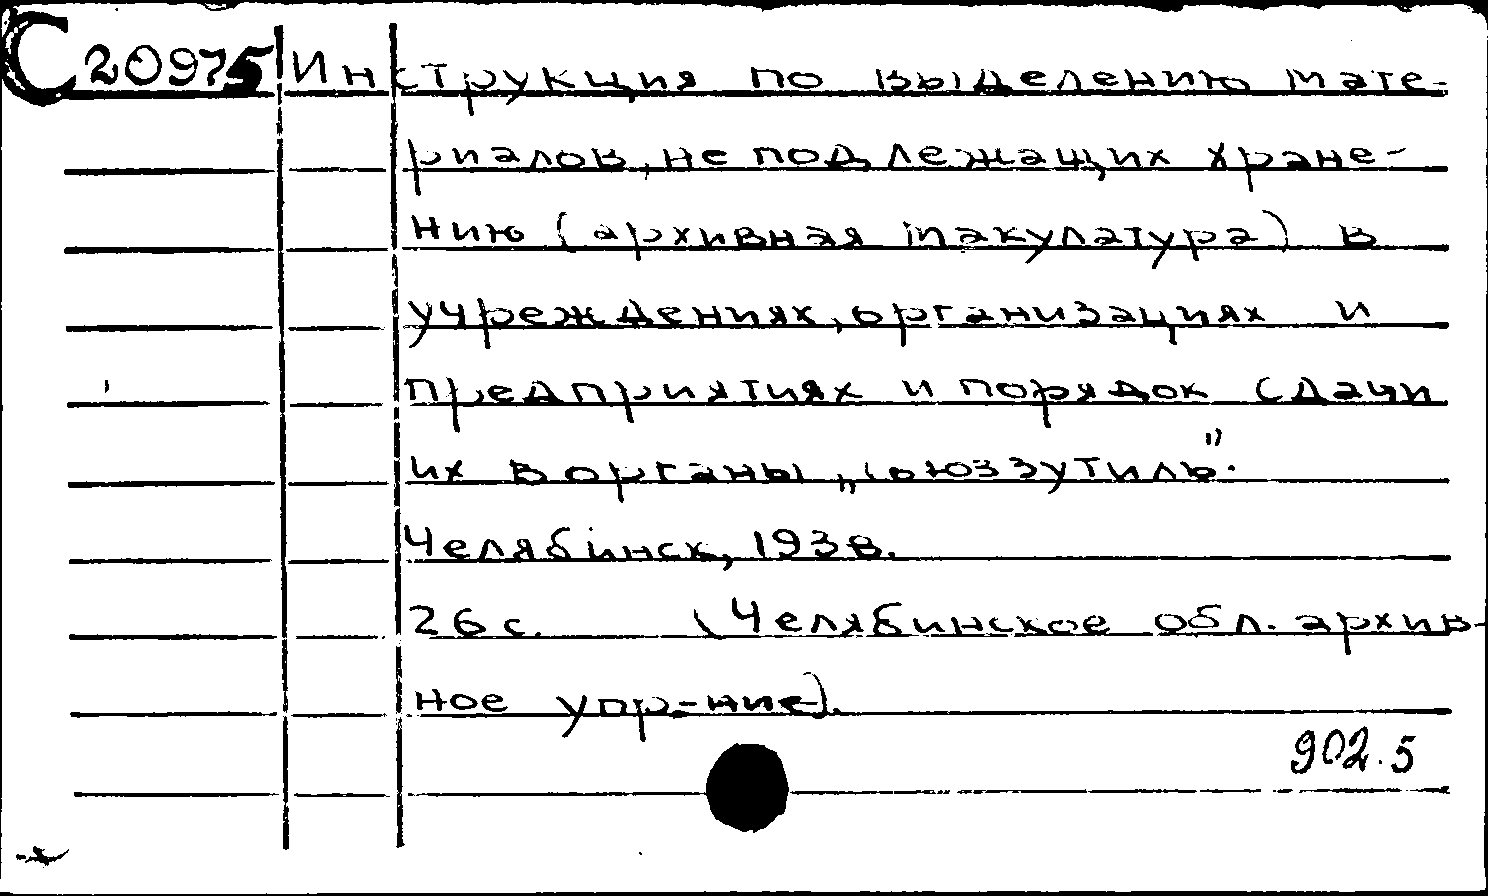 С20975 Инструкция по выделению мате-
риалов, не подлежащих хране-
нию (архивная макулатура) в
учреждениях, организациях и
предприятиях и порядок сдачи
их в органы „Союззутиль".
Челябинск, 1938.
26 с. (Челябинское обл. архив-
ное упр-ние).
902.5